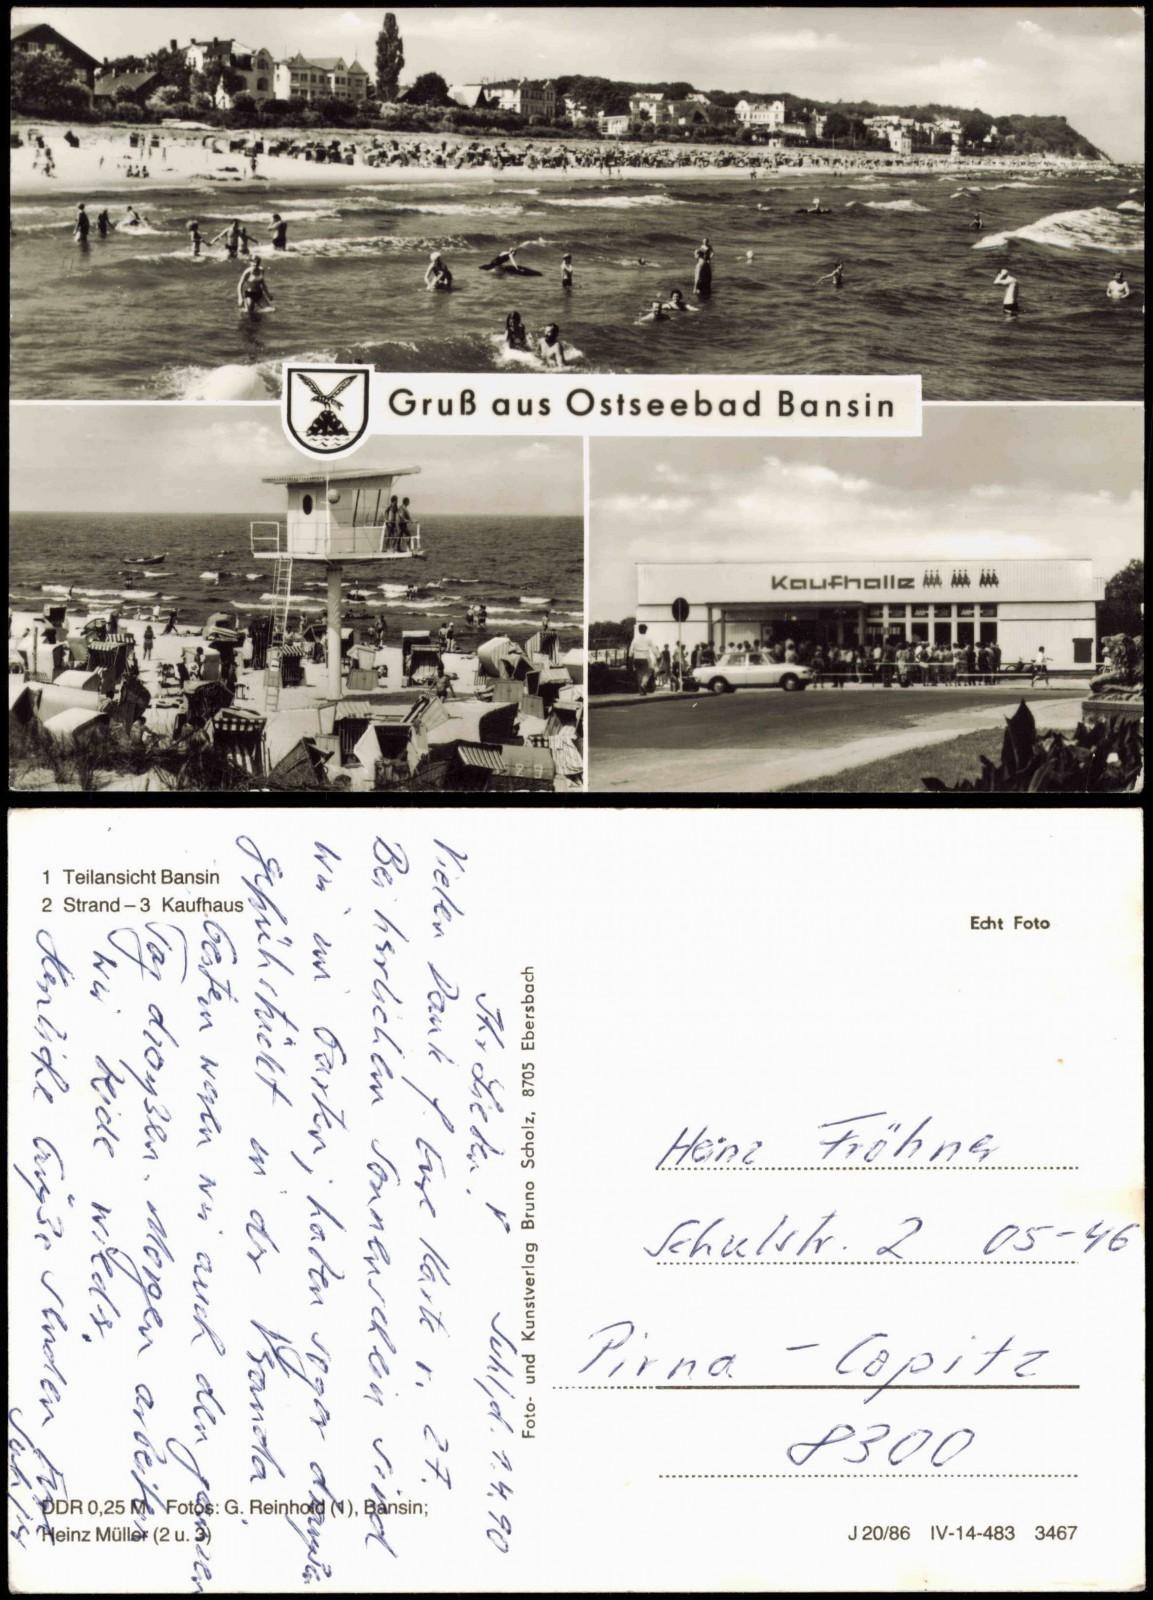 Gruß aus Ostseebad Bansin
Kaufhalle
1 Teilansicht Bansin
2 Strand – 3 Kaufhaus
Echt Foto
Ihr Lieben! Suhl, d. 1.4.90
Vielen Dank f. Eure Karte v. 27.
Bei herrlichem Sonnenschein sind
wir im Garten, haben sogar draußen
gefrühstückt in der Veranda.
Gestern waren wir auch den ganzen
Tag draußen. Morgen arbeiten
wir beide wieder.
Herzliche Grüße senden Euch
Foto- und Kunstverlag Bruno Scholz, 8705 Ebersbach
Heinz Fröhner
Schulstr. 2 05-46
Pirna - Copitz
8300
DDR 0,25 M Fotos: G. Reinhold (1), Bansin;
Heinz Müller (2 u. 3)
J 20/86 IV-14-483 3467